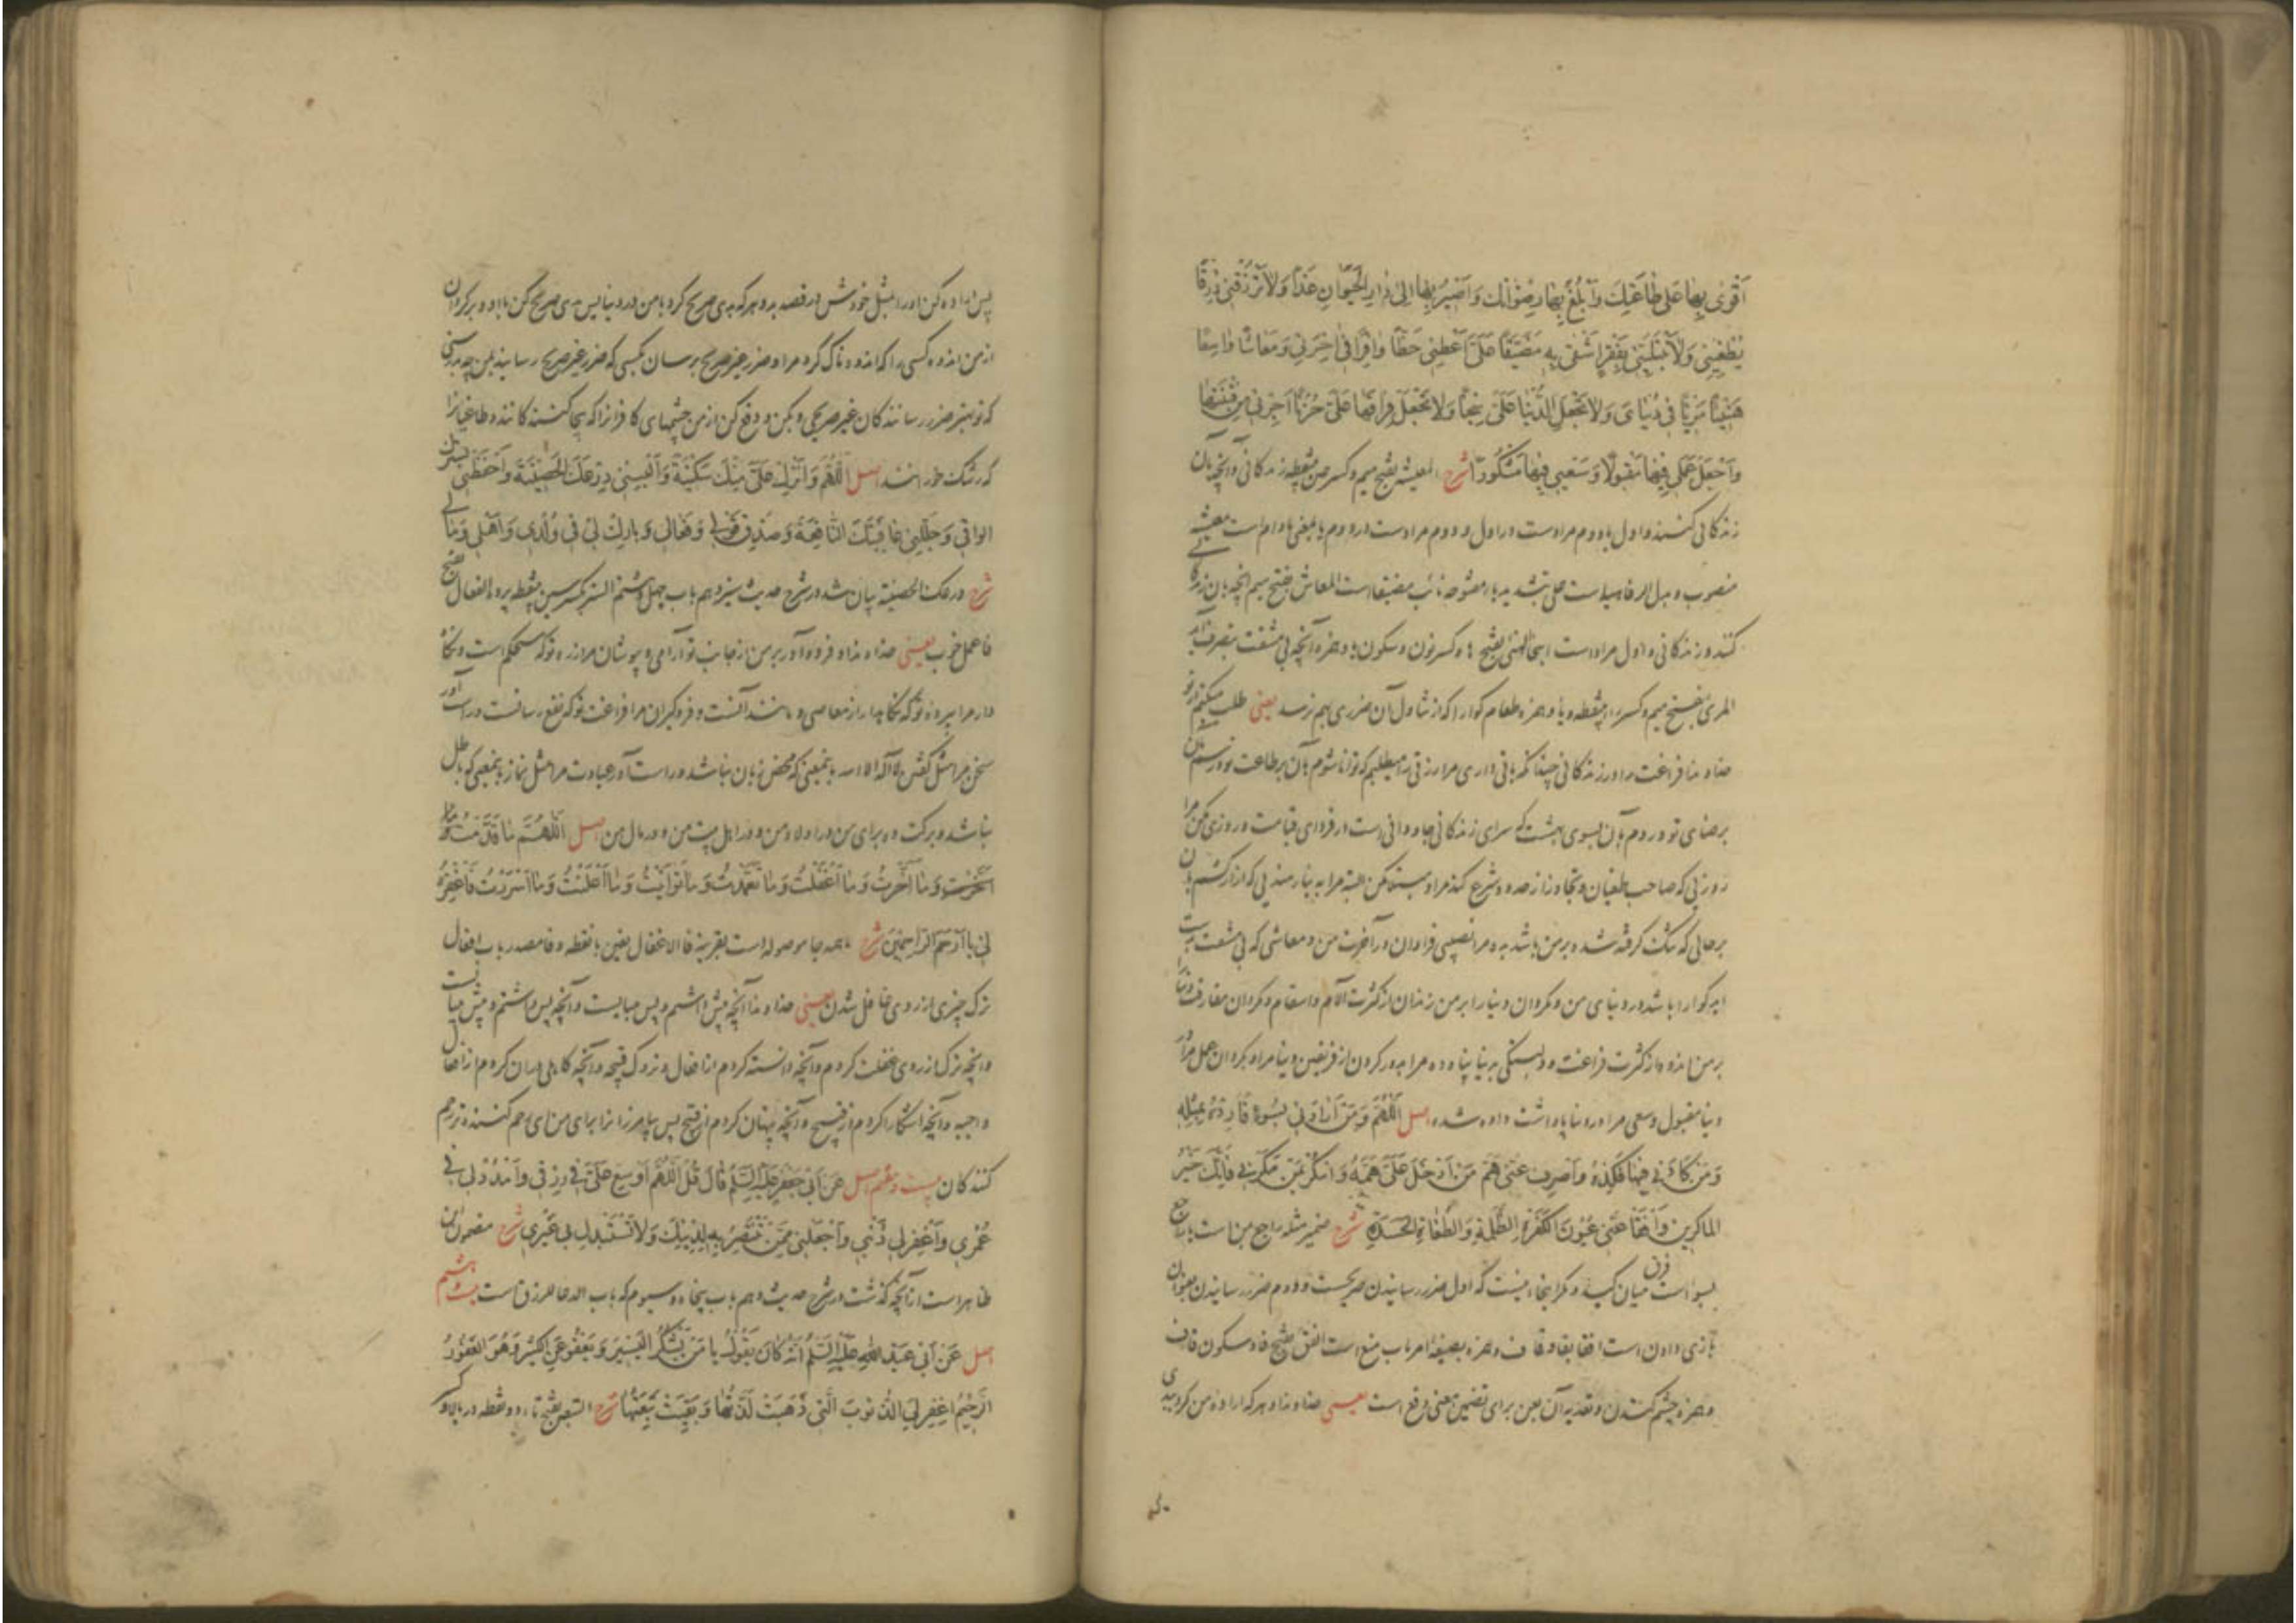 أَقْوَى بِهَا عَلَى طَاعَتِكَ وَأَبْلُغُ بِهَا رِضْوَانَكَ وَأَصِيرُ بِهَا إِلَى دَارِ الْحَيَوَانِ غَدًا وَلَا تَرْزُقْنِي رِزْقًا
يُطْغِينِي وَلَا تَبْتَلِيَنِّي بِفَقْرٍ أَشْقَى بِهِ مُضَيَّقًا عَلَيَّ أَعْطِنِي حَظًّا وَافِرًا فِي آخِرَتِي وَمَعَاشًا وَاسِعًا
هَنِيئًا مَرِيئًا فِي دُنْيَايَ وَلَا تَجْعَلِ الدُّنْيَا عَلَيَّ سِجْنًا وَلَا تَجْعَلْ فِرَاقَهَا عَلَيَّ حُزْنًا أَجِرْنِي مِنْ فِتْنَتِهَا
وَاجْعَلْ عَمَلِي فِيهَا مَقْبُولًا وَسَعْيِي فِيهَا مَشْكُورًا شرح المعیشة بفتح میم و کسر عین بینقطه زندکانی و آنچه بآن
زندکانی کنند و اول یا دوم مرادست در اول و دوم مرادست در دوم ما بمعنی مادام است معیشة
منصوب و بدل الرفاهیة است علی بتشدید یاء مفتوحه نائب مضیقا است المعاش بفتح میم آنچه بآن زندکانی
کنند و زندکانی و اول مراد است اینجا الهنیء بفتح ها و کسر نون و سکون یا و همزه آنچه بی مشقت بتصرف آید
المریء بفتح میم و کسر راء بینقطه و یا و همزه طعام کوارا که از تناول آن ضرری بهم نرسد یعنی طلب میکنم از تو
خداوندا فراغت را در زندکانی چندانکه باقی داری مرا رزقی را میطلبم که توانا شوم بآن بر طاعت تو و برسم بآن
برضای تو و روم بآن بسوی بهشت که سرای زندکانی جاودانی است در فردای قیامت و روزی مکن مرا
روزیی که صاحب طغیان و تجاوز از حدود شرع کند مرا و مبتلا مکن البته مرا به نیازمندیی که آزار کشم بآن
بر حالی که تنک کرفته شده بر من باشد بده مرا نصیبی فراوان در آخرت من و معاشی که بی مشقت بدست
آید کوارا باشد در دنیای من و مکردان دنیا را بر من زندان از کثرت آلام و اسقام و مکردان مفارقت دنیا
بر من اندوه از کثرت فراغت و دلبستکی بدنیا پناه ده مرا بدور کردن از فریفتن دنیا مرا و بکردان عمل مرا در
دنیا مقبول و سعی مرا در دنیا پاداشت داده شده اصل اَللّهُمَّ وَمَنْ أَرَادَنِي بِسُوءٍ فَأَرِدْهُ بِمِثْلِهِ
وَمَنْ كَادَنِي فِيهَا فَكِدْهُ وَاصْرِفْ عَنِّي هَمَّ مَنْ أَدْخَلَ عَلَيَّ هَمَّهُ وَامْكُرْ بِمَنْ مَكَرَ بِي فَإِنَّكَ خَيْرُ
الْمَاكِرِينَ وَافْقَأْ عَنِّي عُيُونَ الْكَفَرَةِ الظَّلَمَةِ وَالطُّغَاةِ الْحَسَدَةِ شرح ضمیر مثله راجع بمن است یا راجع
بسوء است فرق میان کید و مکر اینجا اینست که اول ضرر رسانیدن صریحست و دوم ضرر رسانیدن بعنوان
بازی دادن است افقأ بفا و قاف و همزه بصیغه امر باب منع است الفقء بفتح فا و سکون قاف
و همزه چشم کندن و تعدیه آن بعن برای تضمین معنی دفع است یعنی خداوندا و هر که اراده من کرد ببدی
پس اراده کن او را بمثل خودش در قصد بد و هر که بدی صریح کرد با من در دنیا پس بدی صریح کن با او و برکردان
از من اندوه کسی را که اندوهناک کرد مرا و ضرر غیر صریح برسان بکسی که ضرر غیر صریح رسانید بمن چه بدرستی
که تو بهتر ضرر رسانندکان غیر صریحی و بکن و دفع کن از من چشمهای کافران را که بیجا کنندکانند و طاغیانرا
که رشک خورانند اصل اَللّهُمَّ وَأَنْزِلْ عَلَيَّ مِنْكَ سَكِينَةً وَأَلْبِسْنِي دِرْعَكَ الْحَصِينَةَ وَاحْفَظْنِي بِسِتْرِكَ
الْوَاقِي وَجَلِّلْنِي عَافِيَتَكَ النَّافِعَةَ وَصَدِّقْ قَوْلِي وَفِعَالِي وَبَارِكْ لِي فِي وُلْدِي وَأَهْلِي وَمَالِي
شرح درعک الحصینة بیان شد در شرح حدیث سیزدهم باب چهل و هشتم الستر بکسر سین بینقطه پرده الفعال بفتح
فا عمل خوب یعنی خداوندا و فرود آور بر من از جانب تو آرامی و بپوشان مرا زره تو که محکم است و نکاه
دار مرا بپرده تو که نکاهدار از معاصی و مانند آنست و فروکیران مرا فراغت تو که نفع رسانست و راست آور
سخن مرا مثل کفتن لا اله الا الله باینمعنی که محض زبان نباشد و راست آور عبادت مرا مثل نماز باینمعنی که باطل
نباشد و برکت ده برای من در اولاد من و در اهل بیت من و در مال من اصل اَللّهُمَّ مَا قَدَّمْتُ وَمَا
أَخَّرْتُ وَمَا أَغْفَلْتُ وَمَا تَعَمَّدْتُ وَمَا تَوَانَيْتُ وَمَا أَعْلَنْتُ وَمَا أَسْرَرْتُ فَاغْفِرْهُ
لِي يَا أَرْحَمَ الرَّاحِمِينَ شرح ما همه جا موصوله است بقرینه فا الاغفال بغین با نقطه و فا مصدر باب افعال
ترک چیزی از روی غافل شدن یعنی خداوندا آنچه پیش داشتم و پس میبایست و آنچه پس داشتم و پیش میبایست
و آنچه ترک از روی غفلت کردم و آنچه دانسته کردم از افعال و تروک قبیحه و آنچه کاهلی در آن کردم از افعال
واجبه و آنچه آشکارا کردم از قبیح و آنچه پنهان کردم از قبیح پس بیامرز آنرا برای من ای رحم کننده ترین رحم
کنندکان بیست و هفتم اصل عَنْ أَبِي جَعْفَرٍ عَلَيْهِ السَّلَامُ قَالَ قُلِ اللَّهُمَّ أَوْسِعْ عَلَيَّ فِي رِزْقِي وَامْدُدْ لِي فِي
عُمْرِي وَاغْفِرْ لِي ذَنْبِي وَاجْعَلْنِي مِمَّنْ تَنْتَصِرُ بِهِ لِدِينِكَ وَلَا تَسْتَبْدِلْ بِي غَيْرِي شرح مضمون این
ظاهر است از آنچه کذشت در شرح حدیث دهم باب پنجاه و سیوم که باب الدعاء للرزق است بیست و هشتم
اصل عَنْ أَبِي عَبْدِ اللَّهِ عَلَيْهِ السَّلَامُ أَنَّهُ كَانَ يَقُولُ يَا مَنْ يَشْكُرُ الْيَسِيرَ وَيَعْفُو عَنِ الْكَثِيرِ وَهُوَ الْغَفُورُ
الرَّحِيمُ اغْفِرْ لِيَ الذُّنُوبَ الَّتِي ذَهَبَتْ لَذَّتُهَا وَبَقِيَتْ تَبِعَتُهَا شرح التبعة بفتح تاء دو نقطه در بالا و کسر